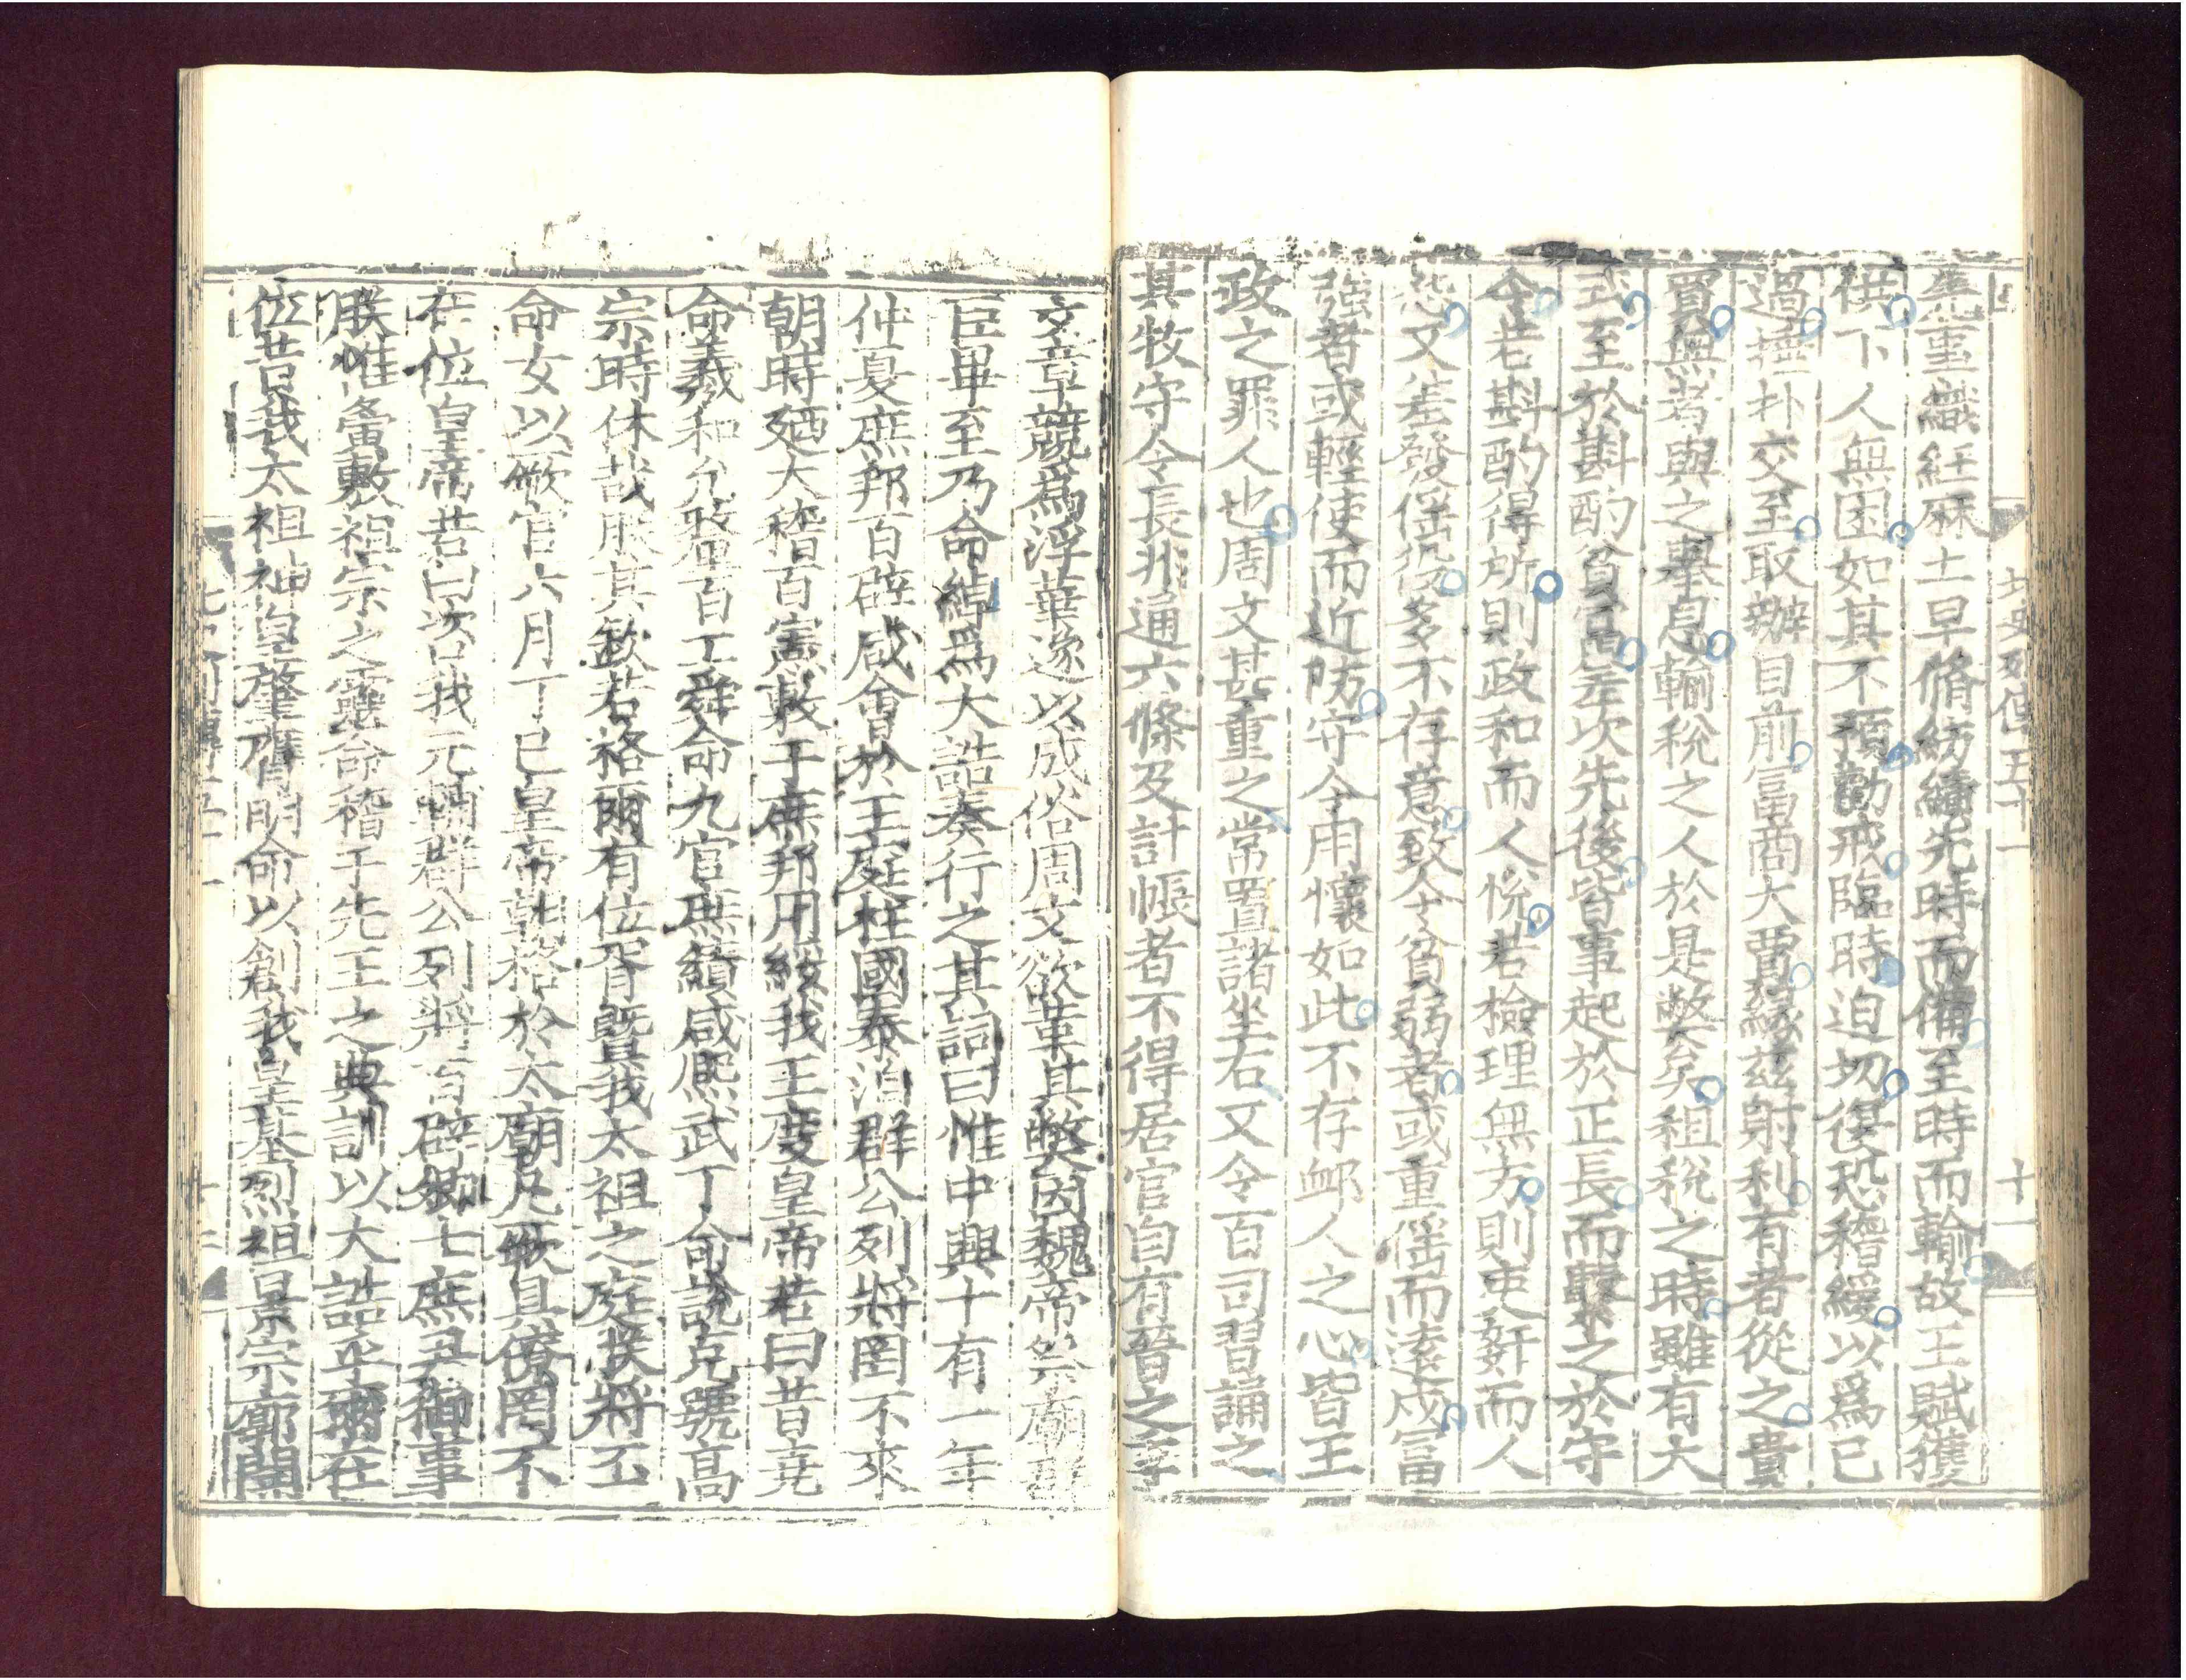 北史列傳五十一　十一
先事織紝麻土早脩紡績先時而備至時而輸故王賦獲
供下人無困如其不預勸戒臨時迫切復恐稽緩以爲己
過捶扑交至取辦目前富商大賈緣茲射利有者從之貴
買無者與之舉息輸稅之人於是弊矣租稅之時雖有大
式至於斟酌貧富差次先後皆事起於正長而繫之於守
令若斟酌得所則政和而人悅若檢理無方則吏姧而人
怨又差發徭役多不存意致令貧弱者或重徭而遠戍富
強者或輕使而近防守令用懷如此不存卹人之心皆王
政之罪人也周文甚重之常置諸坐右又令百司習誦之
其牧守令長非通六條及計帳者不得居官自有晉之季
文章競爲浮華遂以成俗周文欲革其弊因魏帝祭廟群
臣畢至乃命綽爲大誥奏行之其詞曰惟中興十有一年
仲夏庶邦百辟咸會於王庭柱國泰洎群公列將罔不來
朝時廼大稽百憲敷于庶邦用綏我王度皇帝若曰昔堯
命羲和允釐百工舜命九官庶績咸熙武丁命說克號高
宗時休哉朕其欽若格爾有位胥暨我太祖之庭朕將丕
命女以厥官六月丁巳皇帝朝格於太廟凡厥具僚罔不
在位皇帝若曰咨我元輔群公列將百辟卿士庶尹御事
朕惟夤敷祖宗之靈命稽于先王之典訓以大誥乎爾在
位昔我太祖神皇肇膺明命以創我皇基烈祖景宗廓開
北史列傳五十一　十二